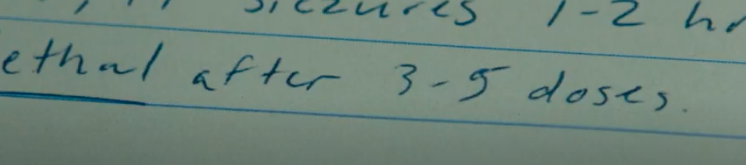 siezures 1-2 hr
ethal after 3-5 doses.